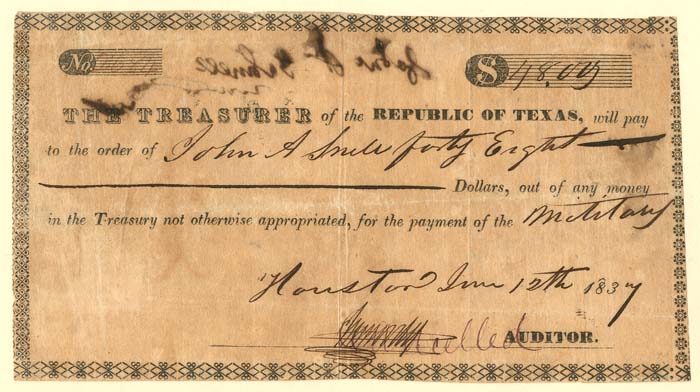 No
$ 48.00
THE TREASURER of the REPUBLIC OF TEXAS, will pay
to the order of John A Snell forty Eight
Dollars, out of any money
in the Treasury not otherwise appropriated, for the payment of the Military
Houston June 12th 1837
AUDITOR.